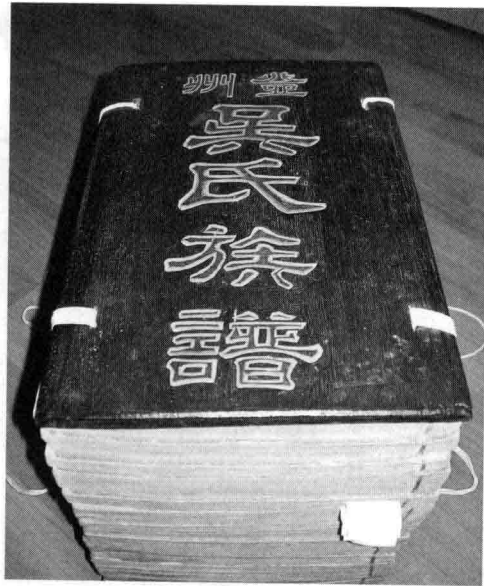 州
吳
氏
族
譜